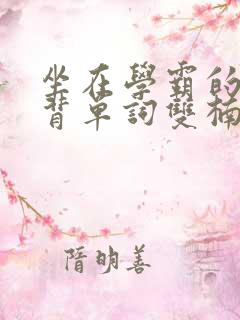 坐在學霸的
背單詞雙楠
隋明善